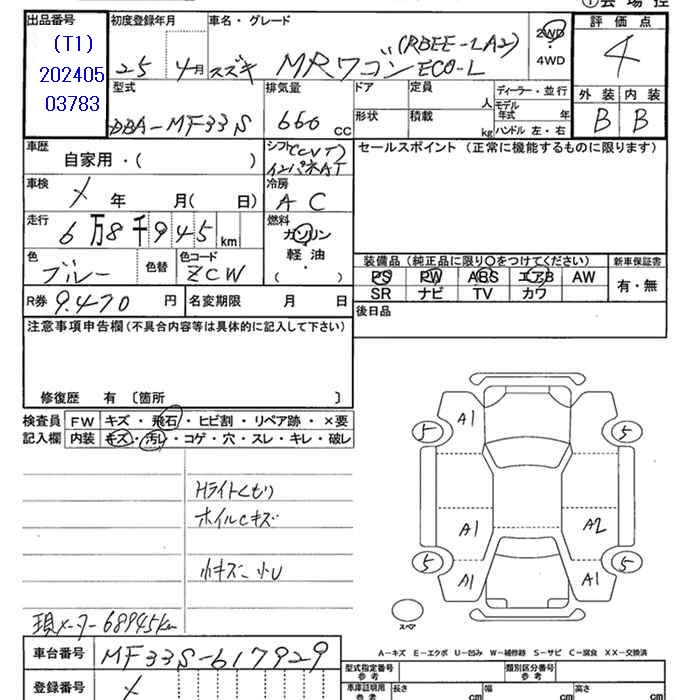 ①会場控
出品番号 初度登録年月 車名・グレード 2WD 評価点
(T1) (RBEE-LA2)
202405 25 4月 スズキ MRワゴン ECO-L 4WD 4
03783 型式 排気量 ドア 定員 人 ディーラー・並行 外装 内装
モデル年式 年
DBA-MF33S 660 CC 形状 積載 kg ハンドル 左・右 B B
車歴 自家用・( ) シフト(CVT) セールスポイント (正常に機能するものに限ります)
インパネAT
車検 メ 年 月( 日) 冷房 AC
走行 6万8千945km 燃料 ガソリン
軽油
( )
色 ブルー 色替 色コード ZCW
装備品 (純正品に限り○をつけてください) 新車保証書
PS PW ABS エアB AW 有・無
SR ナビ TV カワ
R券 9.470 円 名変期限 月 日 後日品
注意事項申告欄 (不具合内容等は具体的に記入して下さい)
修復歴 有 〔箇所 〕
検査員 FW キズ・飛石・ヒビ割・リペア跡・×要
記入欄 内装 キズ・汚レ・コゲ・穴・スレ・キレ・破レ
A1
5 5
Hライトくもり
ホイルCキズ
A1 A2
小キズ、小U
5 5
A1 A1
スペア
現メーター68945km
A−キズ E−エクボ U−凹み W−補修跡 S−サビ C−腐食 XX−交換済
車台番号 MF33S-617929
型式指定番号 参考 類別区分番号 参考
登録番号 メ
車庫証明用 参考 長さ cm 幅 cm 高さ cm